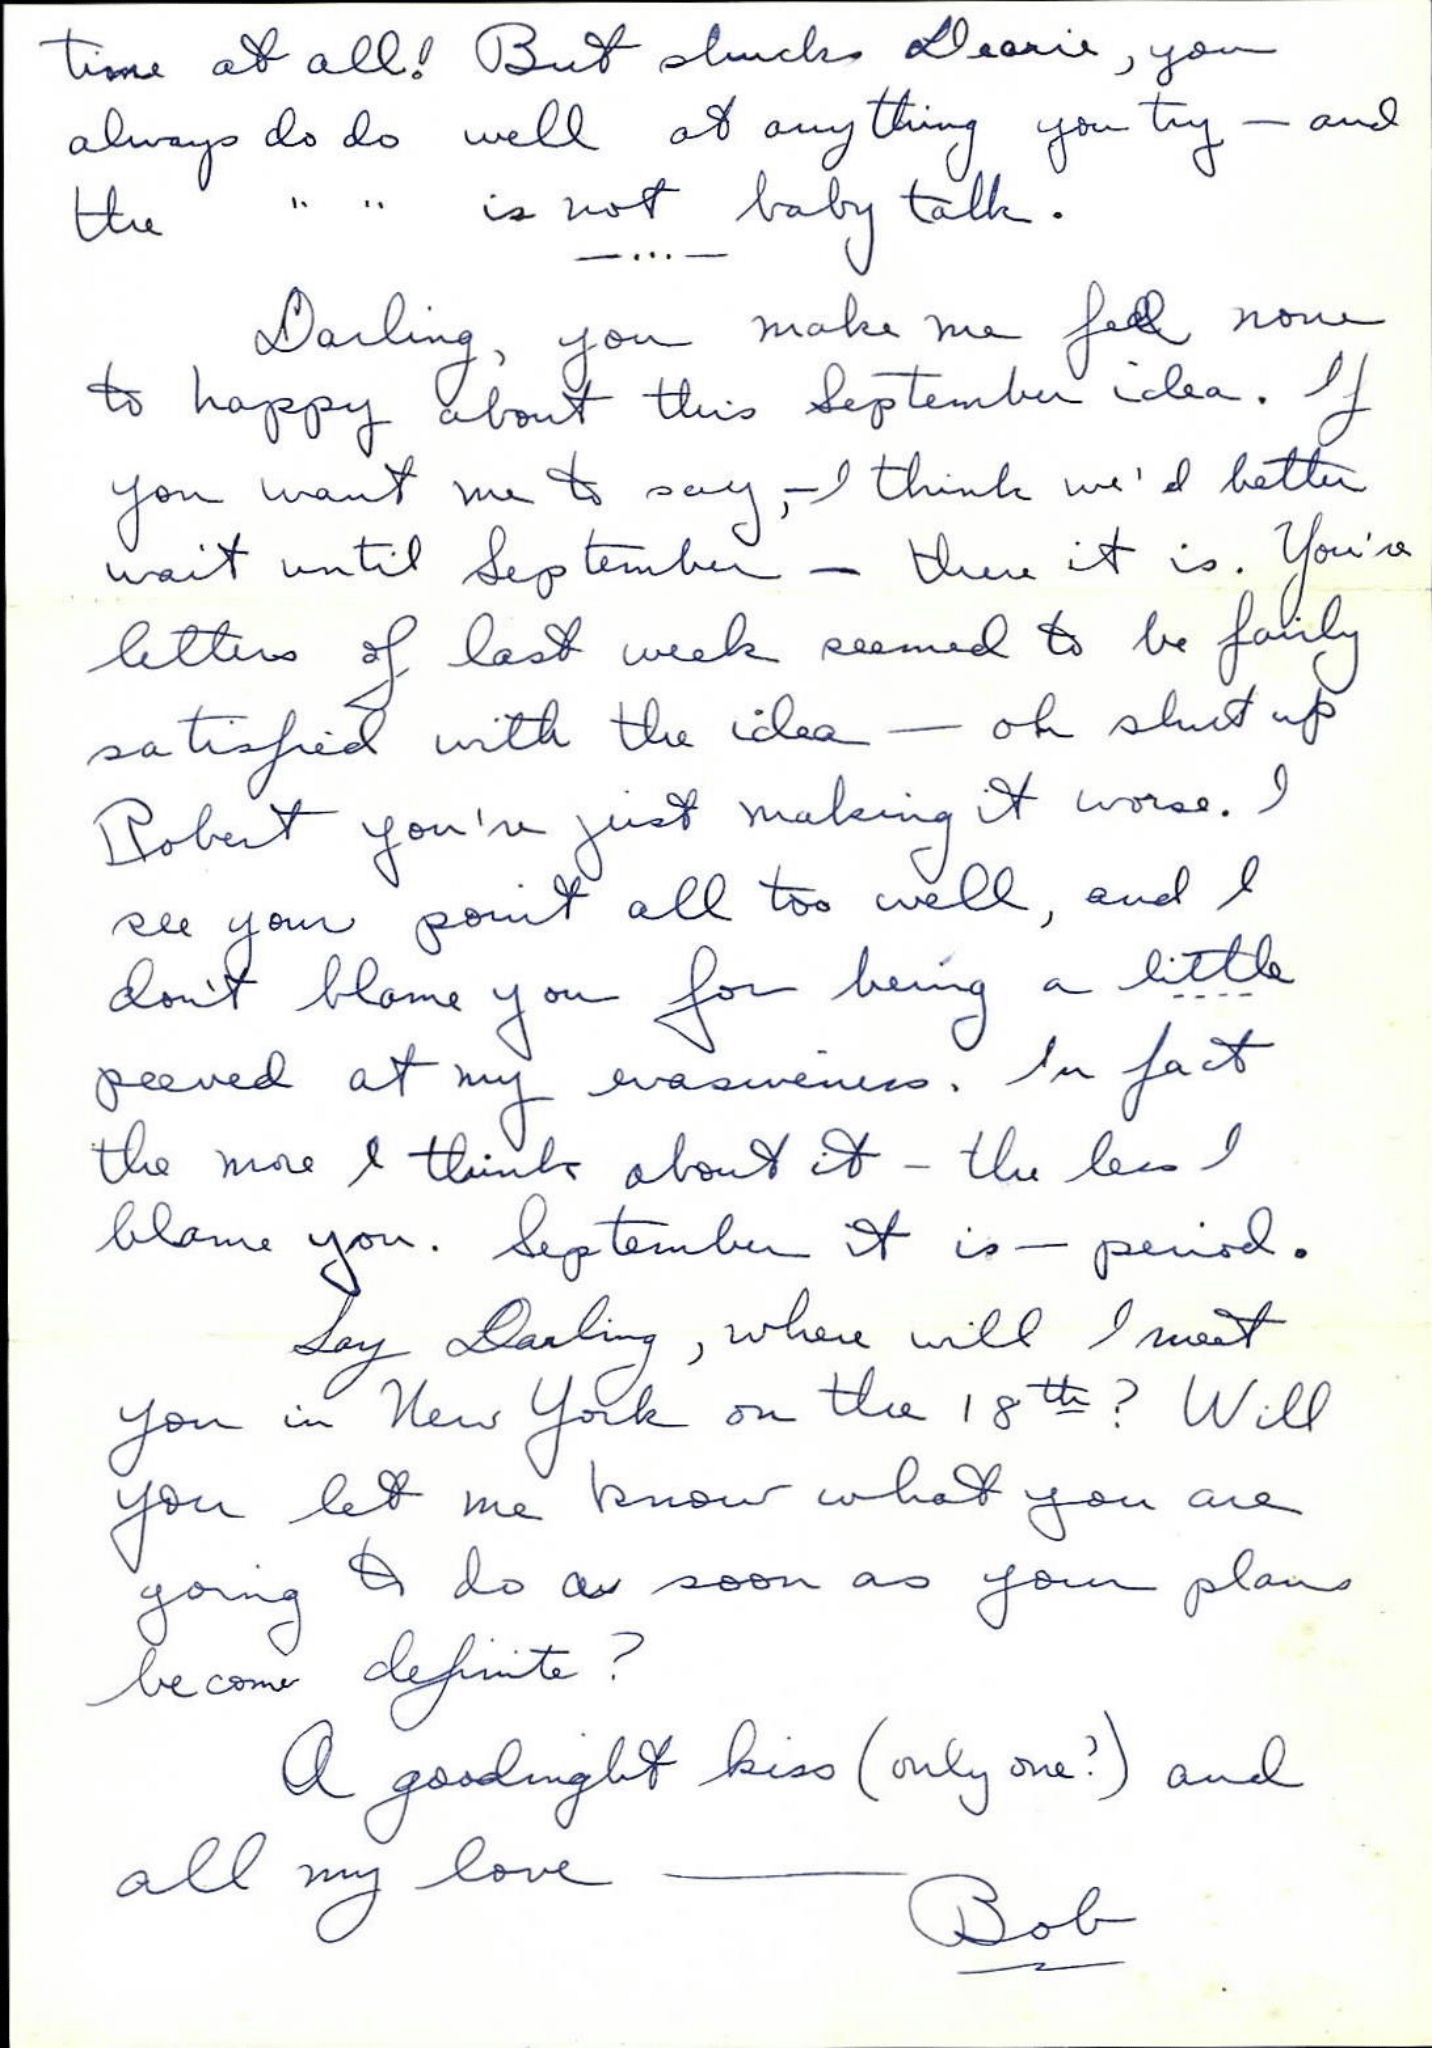 time at all! But shucks Dearie, you
always do do well at anything you try — and
the " " is not baby talk.
—...—
Darling, you make me feel none
to happy about this September idea. If
you want me to say, — I think we'd better
wait until September — there it is. You're
letters of last week seemed to be fairly
satisfied with the idea — oh shut up
Robert you're just making it worse. I
see your point all too well, and I
don't blame you for being a little
peeved at my evasiveness. In fact
the more I think about it — the less I
blame you. September it is — period.
Say Darling, where will I meet
you in New York on the 18th? Will
you let me know what you are
going to do as soon as your plans
become definite?
A goodnight kiss (only one?) and
all my love —
Bob